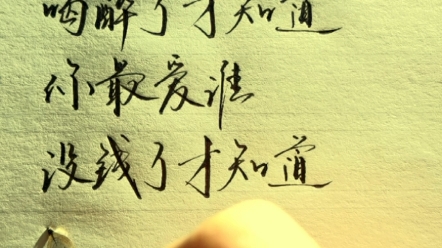 喝醉了才知道
你最爱谁
没钱了才知道